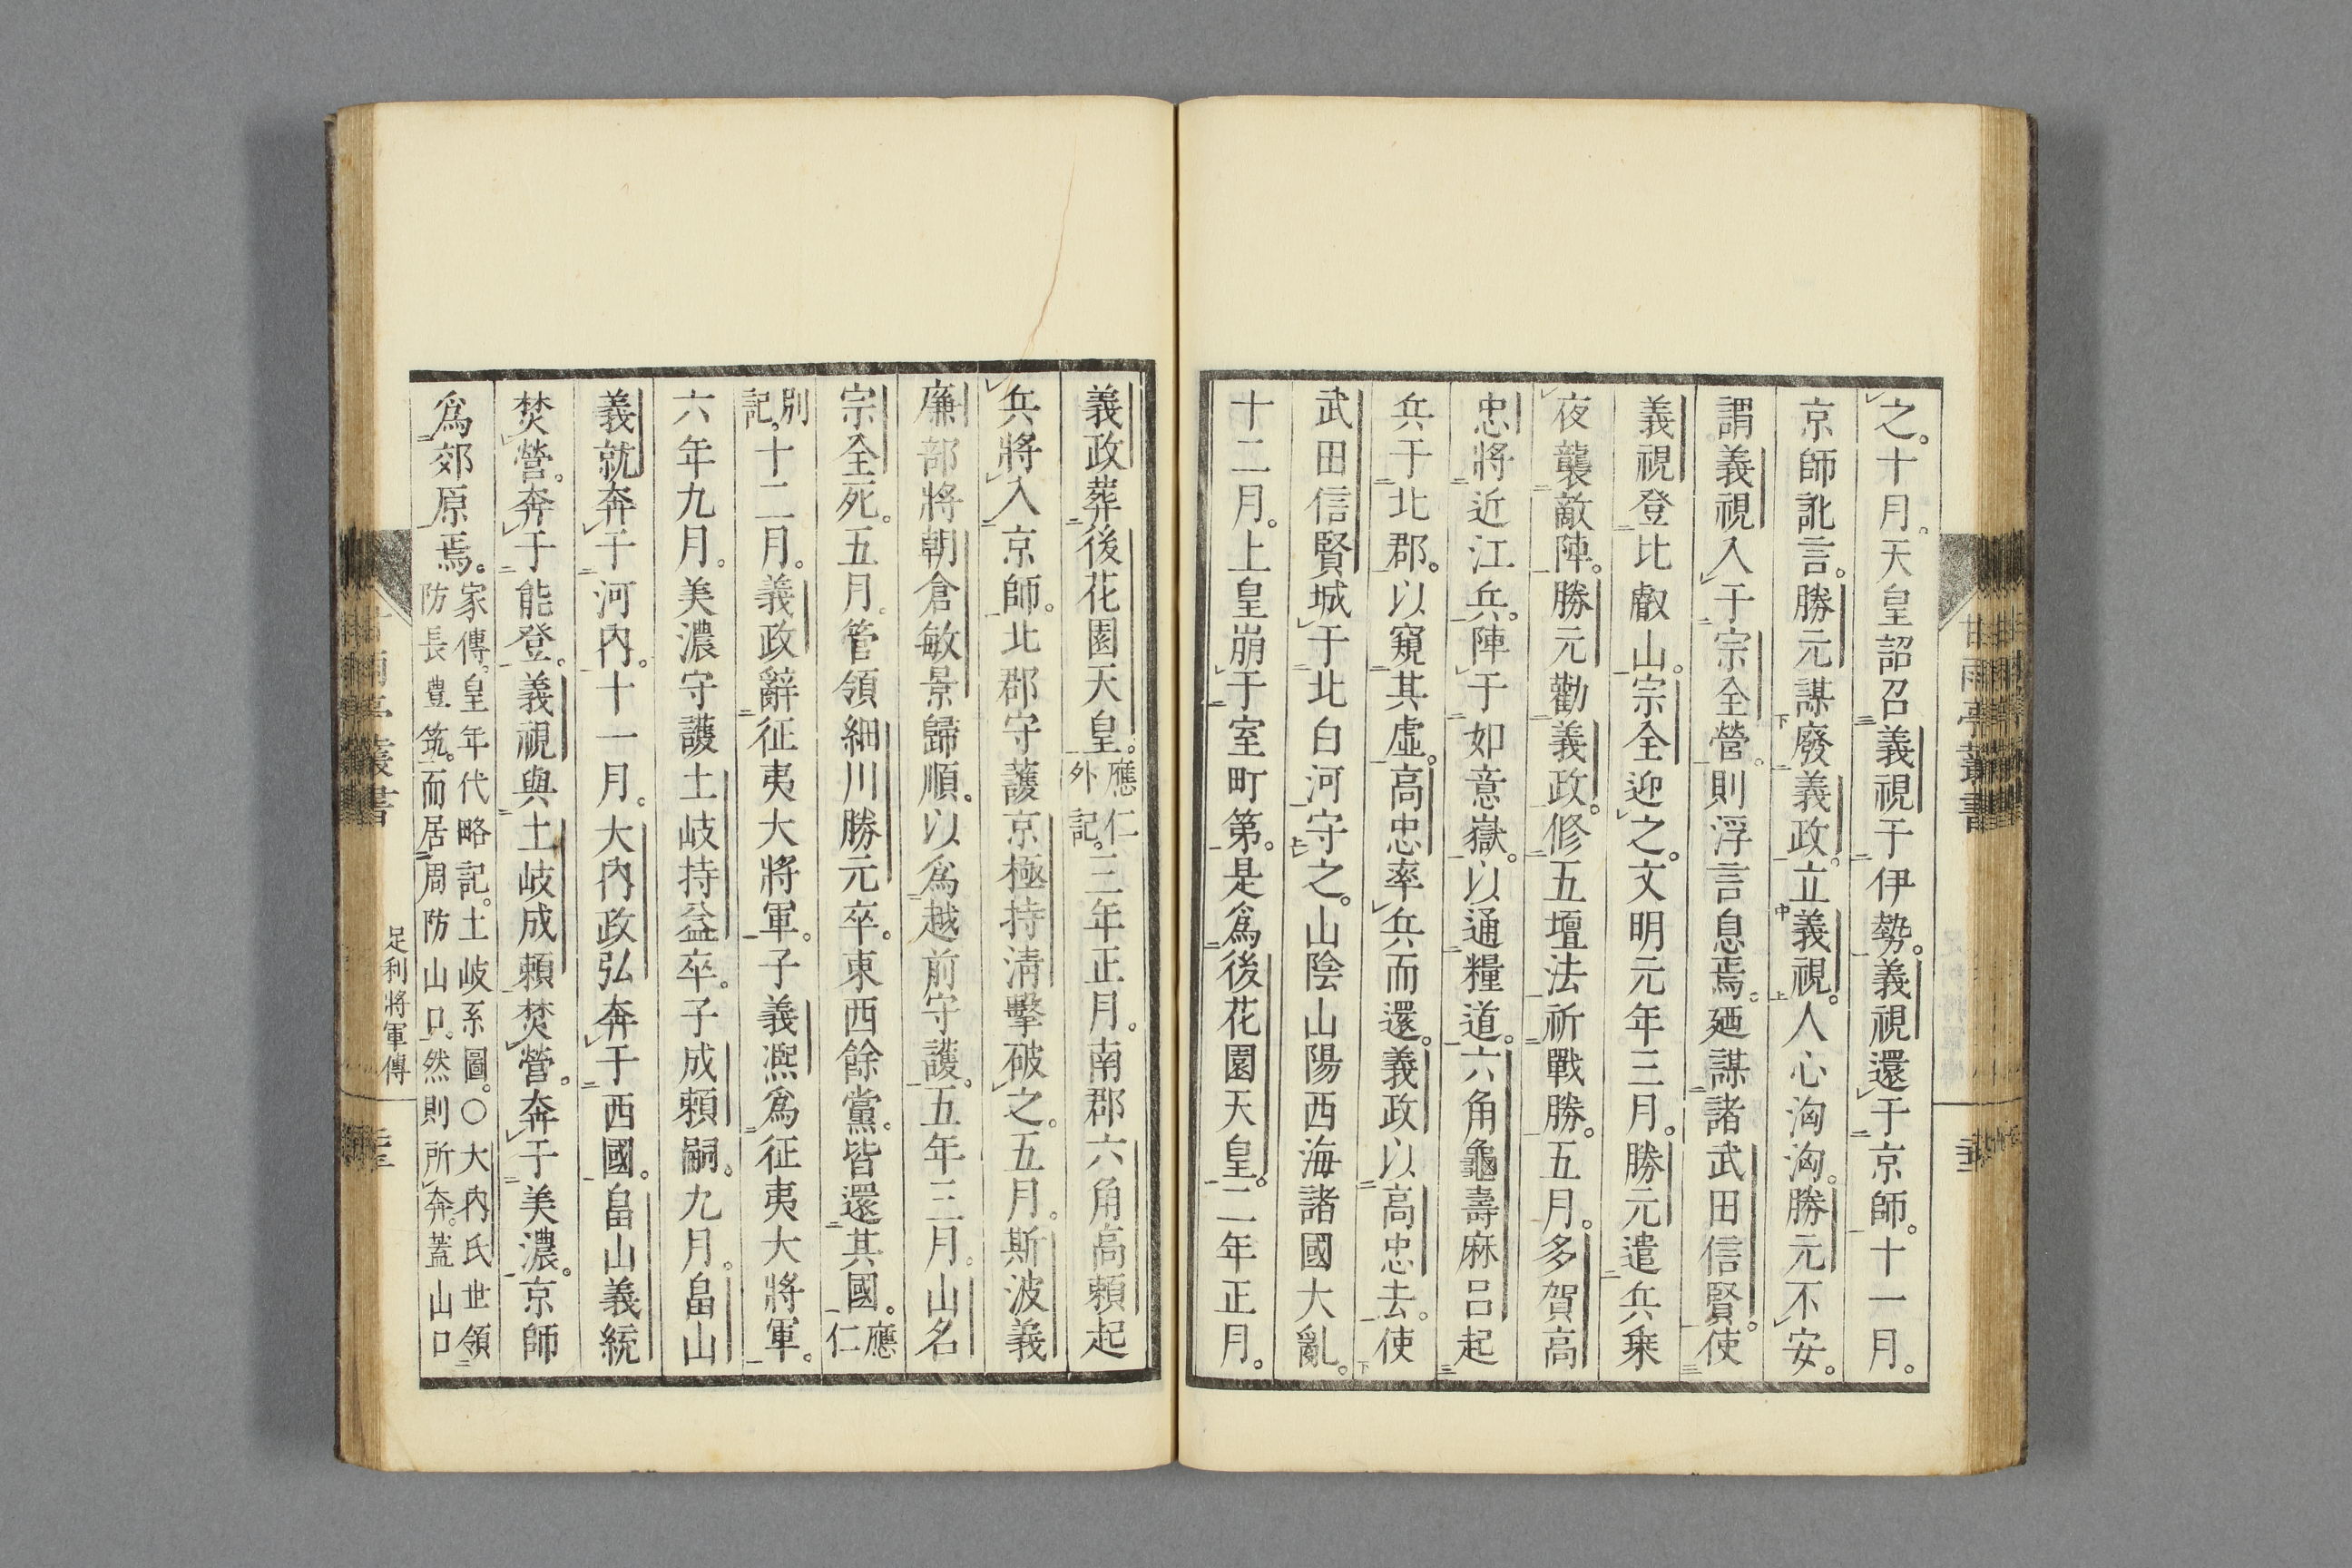 之。十月。天皇詔召義視于伊勢。義視還于京師。十一月。
京師訛言。勝元謀廢義政。立義視。人心洶洶。勝元不安。
謂義視入于宗全營。則浮言息焉。廼謀諸武田信賢。使
義視登比叡山。宗全迎之。文明元年三月。勝元遣兵乗
夜襲敵陣。勝元勸義政。修五壇法祈戰勝。五月。多賀高
忠將近江兵。陣于如意嶽。以通糧道。六角龜壽麻呂起
兵于北郡。以窺其虛。高忠率兵而還。義政以高忠去。使
武田信賢城于北白河守之。山陰山陽西海諸國大亂。
十二月。上皇崩于室町第。是爲後花園天皇。二年正月。
義政葬後花園天皇。應仁外記。三年正月。南郡六角高頼起
兵將入京師。北郡守護京極持清擊破之。五月。斯波義
廉部將朝倉敏景歸順。以爲越前守護。五年三月。山名
宗全死。五月。管領細川勝元卒。東西餘黨。皆還其國。應仁
別記。十二月。義政辭征夷大將軍。子義凞爲征夷大將軍。
六年九月。美濃守護土岐持益卒。子成頼嗣。九月。畠山
義就奔于河內。十一月。大內政弘奔于西國。畠山義統
焚營。奔于能登。義視與土岐成頼焚營。奔于美濃。京師
爲郊原焉。家傳。皇年代略記。土岐系圖。○大內氏世領
防長豊筑。而居周防山口。然則所奔。蓋山口
甘雨亭叢書
足利將軍傳